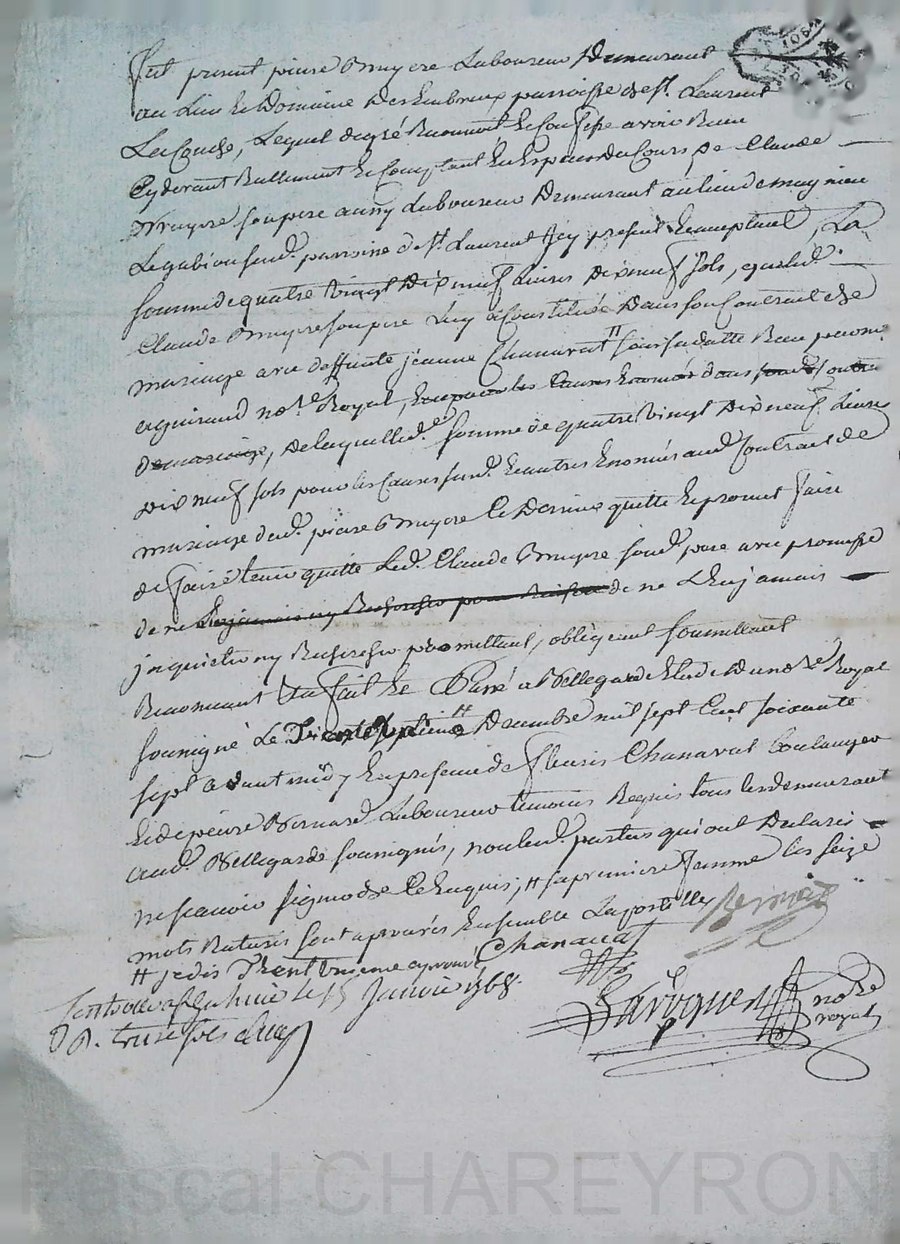 fut present pierre Bruyere Laboureur Demeurant
au Lieu et Domaine Des paroisse de St. Laurent
La Conche, Lequel de gré Reconnoit et Confesse avoir Receu
Cy devant Reellement et Comptant En Especes Du Cours De Claude
Bruyere son pere aussy Laboureur Demeurant au lieu de
paroisse de St. Laurent Icy present Et acceptant, La
somme de quatre Vingt Dix neuf Livres Dix neuf sols, que led.
Claude Bruyere son pere Luy a Constituée Dans son Contrait de
mariage avec deffunte jeanne Chanavat # sous sa datte Receu par me.
aguiraud nore. Royal,
De mariage, De laquelle d. somme de quatre Vingt Dix neuf Livres
Dix neuf sols pour les Causes susd. Et autres Enoncés aud. Contrait de
mariage dud. pierre Bruyere Ce Dernier quitte Et promet faire
Et faire tenir quitte Led. Claude Bruyere sond. pere avec promesse
de ne Luy jamais ny Rechercher de ne L'En jamais
jnquieter ny Rechercher promettant, obligeant soumettant
Renonceant &a fait Et Passé a Bellegarde Etude Du nore. Royal
soussigné Le Trente # Decembre mil sept Cent soixante
sept avant midy En presence de fleuris Chanavat boulanger
Et de pierre Bernard Laboureur temoins Requis tous les demeurant
aud. Bellegarde soussignés, non Lesd. parties qui ont Declaré
ne sçavoir signer de Ce Enquis; # sa premiere femme les seize
mots Raturés sont aprouvés Ensemble L'apostille Bernard
# je dis Trent unieme aprouvé Chanavat
Controllé a le 15 Janvier 1768.
R. treize sols
Laroque nore
royal
Pascal CHAREYRON